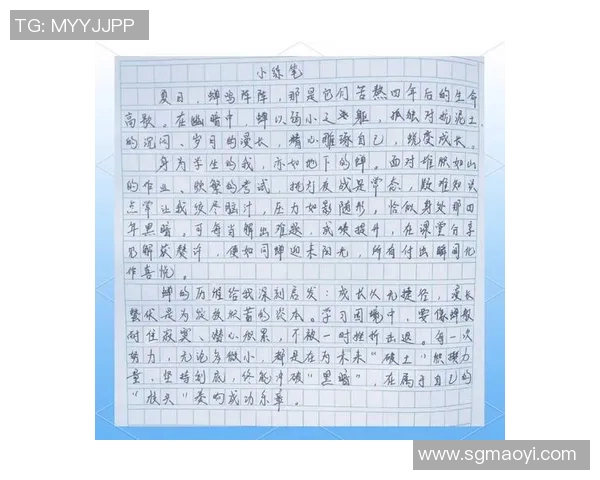 TG: MYYJJPP
小练笔
夏日，蝉鸣阵阵，那是它们苦熬四年后的生命
高歌。在幽暗中，蝉以弱小之躯，孤独对抗泥土
的沉闷、岁月的漫长，精心雕琢自己，统变成长。
身为学生的我，亦如地下的蝉。面对堆积如山
的作业、频繁的考试，挑灯夜战是常态，疑难知识
点常让我绞尽脑汁，压力如影随形，恰似身处那四
年黑暗。可每当解出难题，成绩提升，在课堂分享
见解获赞许，便如同蝉迎来阳光，所有付出瞬间化
作喜悦。
蝉的历程给我深刻启发：成长从无捷径，漫长
蛰伏是为绽放积蓄的资本。学习困境中，要像蝉般
耐住寂寞、潜心积累，不被一时挫折击退。每一次
努力，无论多微小，都是在为未来“破土”积攒力
量，坚持到底，终能冲破“黑暗”，在属于自己的
“枝头”奏响成功乐章。
www.sgmaoyi.com